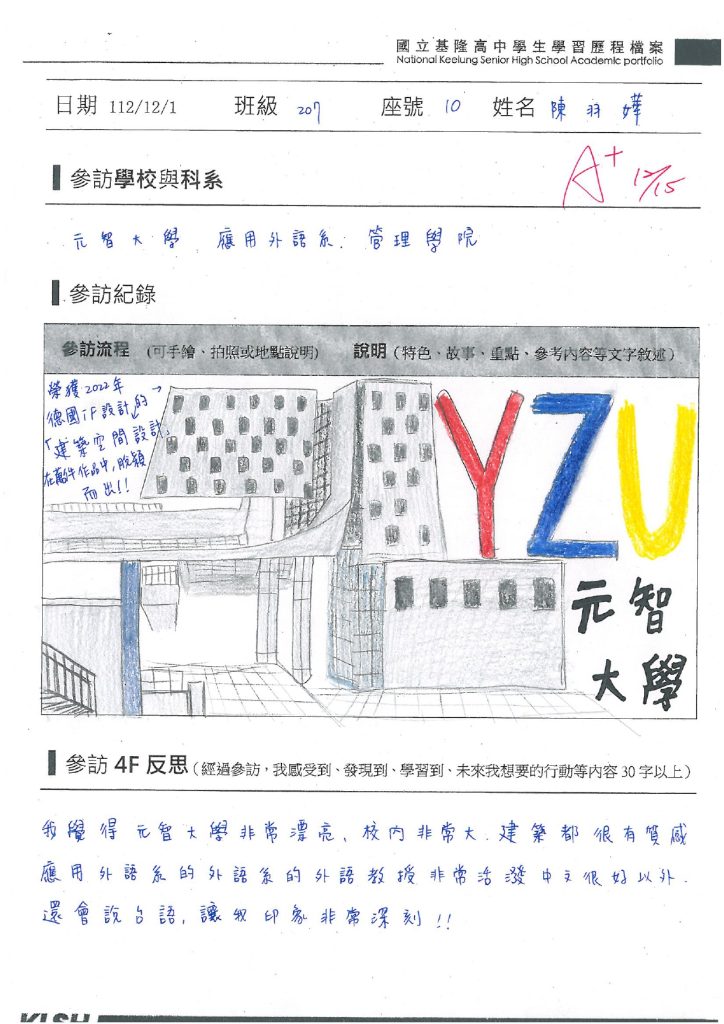 國立基隆高中學生學習歷程檔案
National Keelung Senior High School Academic portfolio
日期 112/12/1 班級 207 座號 10 姓名 陳羽嬅
A+ 12/15
參訪學校與科系
元智大學 應用外語系. 管理學院
參訪紀錄
參訪流程 (可手繪、拍照或地點說明) 說明 (特色、故事、重點、參考內容等文字敘述)
榮獲2022年→
德國iF設計的
「建築空間設計」
在萬件作品中,脫穎
而出!!
YZU
元智
大學
參訪 4F 反思 (經過參訪,我感受到、發現到、學習到、未來我想要的行動等內容 30 字以上)
我覺得元智大學非常漂亮、校內非常大.建築都很有質感
應用外語系的外語系的外語教授非常活潑中文很好以外.
還會說台語,讓我印象非常深刻!!
KLSH